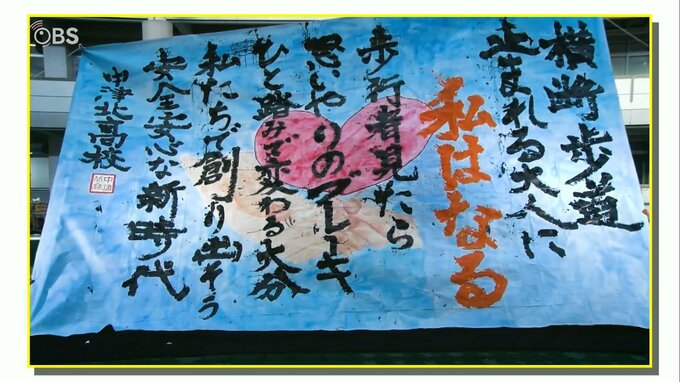 OBS
横断歩道
止まれる大人に
私はなる
歩行者見たら
思いやりのブレーキ
ひと踏みで変わる大分
私たちで創り出そう
安全安心な新時代
中津北高校